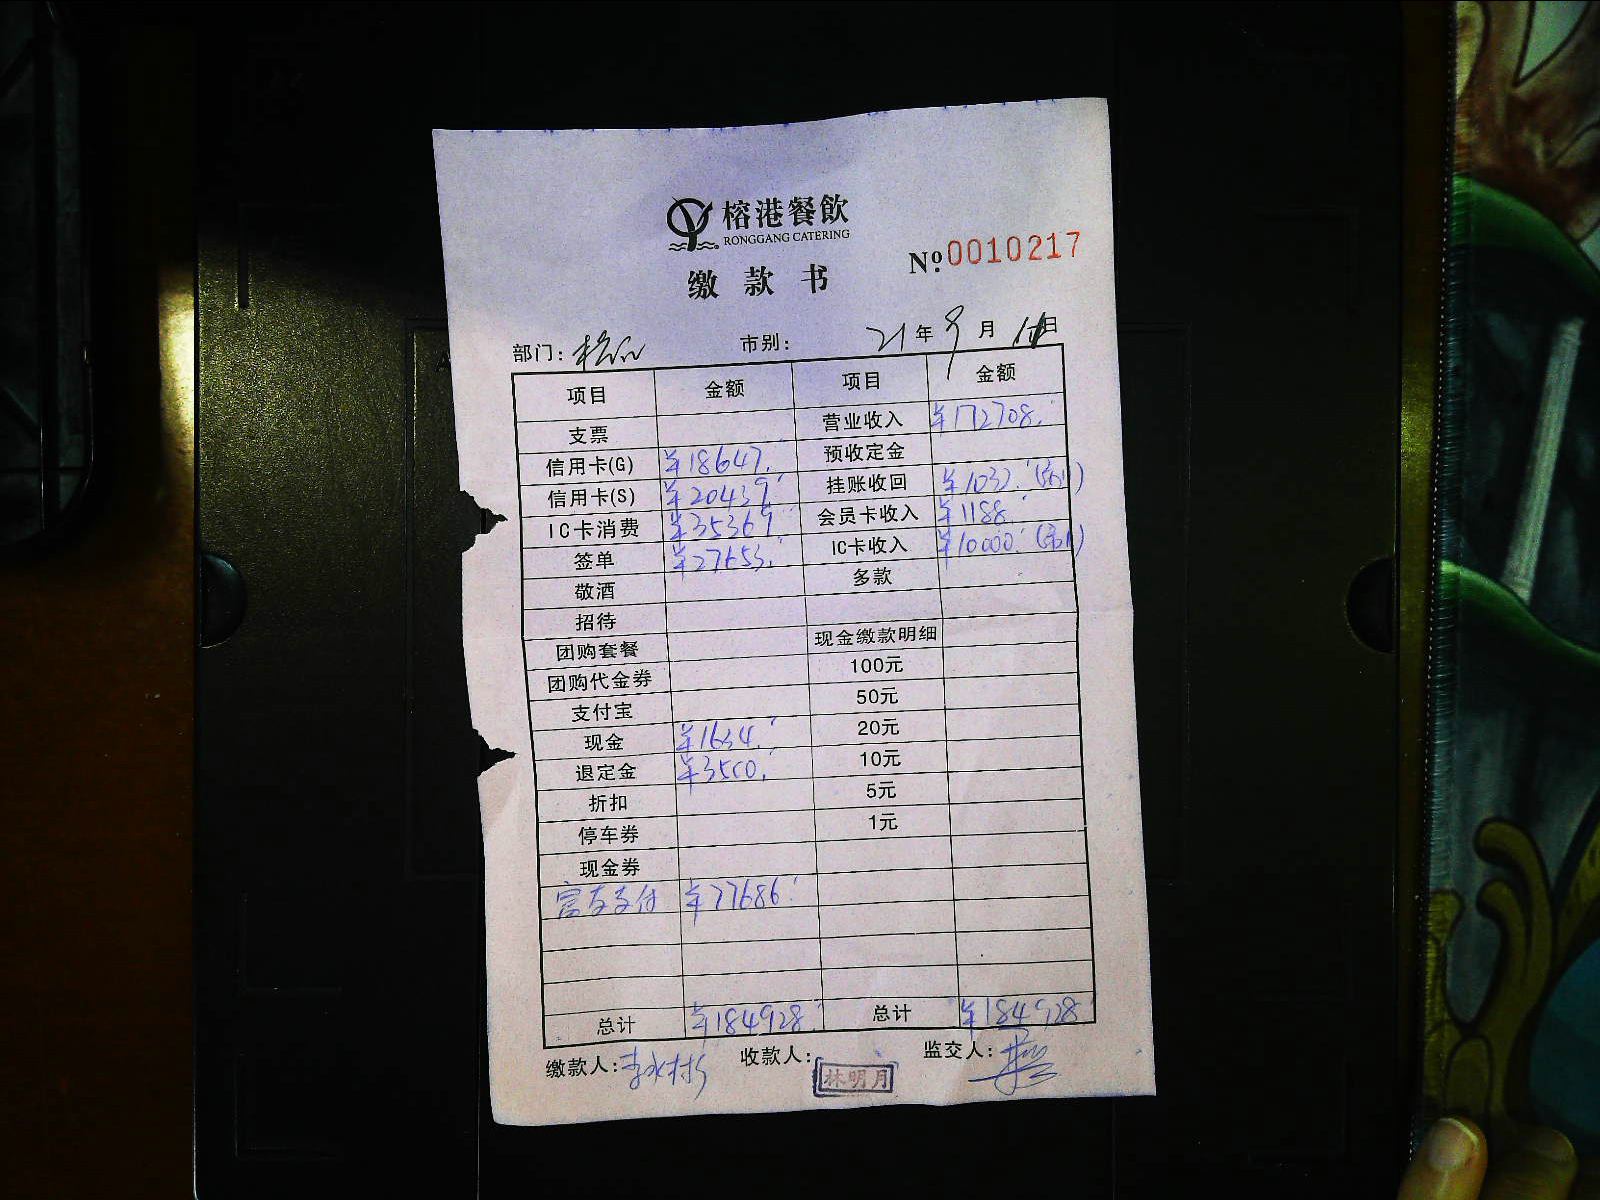 榕港餐飲
RONGGANG CATERING
缴款书 Nº.0010217
部门: 市别: 21年9月 日
项目 金额 项目 金额
支票 营业收入 ¥172708.
信用卡(G) ¥18647. 预收定金
信用卡(S) ¥20439. 挂账收回 ¥1032.
IC卡消费 ¥35369. 会员卡收入 ¥1188.
签单 ¥27653. IC卡收入 ¥10000.
敬酒 多款
招待
团购套餐 现金缴款明细
团购代金券 100元
支付宝 50元
现金 ¥1634. 20元
退定金 ¥3500. 10元
折扣 5元
停车券 1元
现金券
富友支付 ¥77686.
总计 ¥184928. 总计 ¥184928.
缴款人: 收款人: 林明月 监交人: